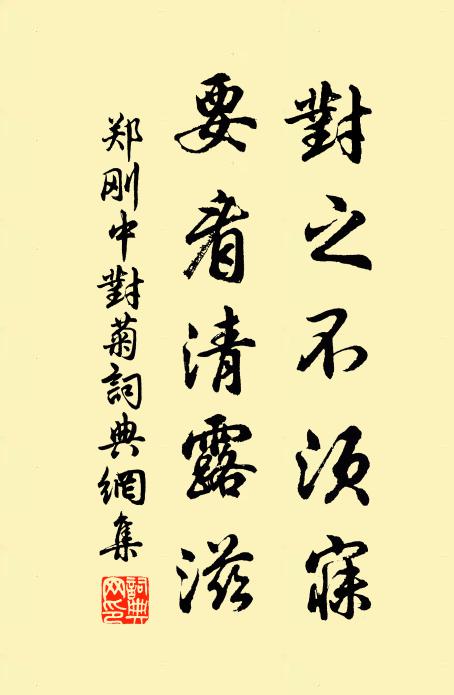 對之不須寐
要看清露滋
郑刚中對菊詞典網集
詞典網印